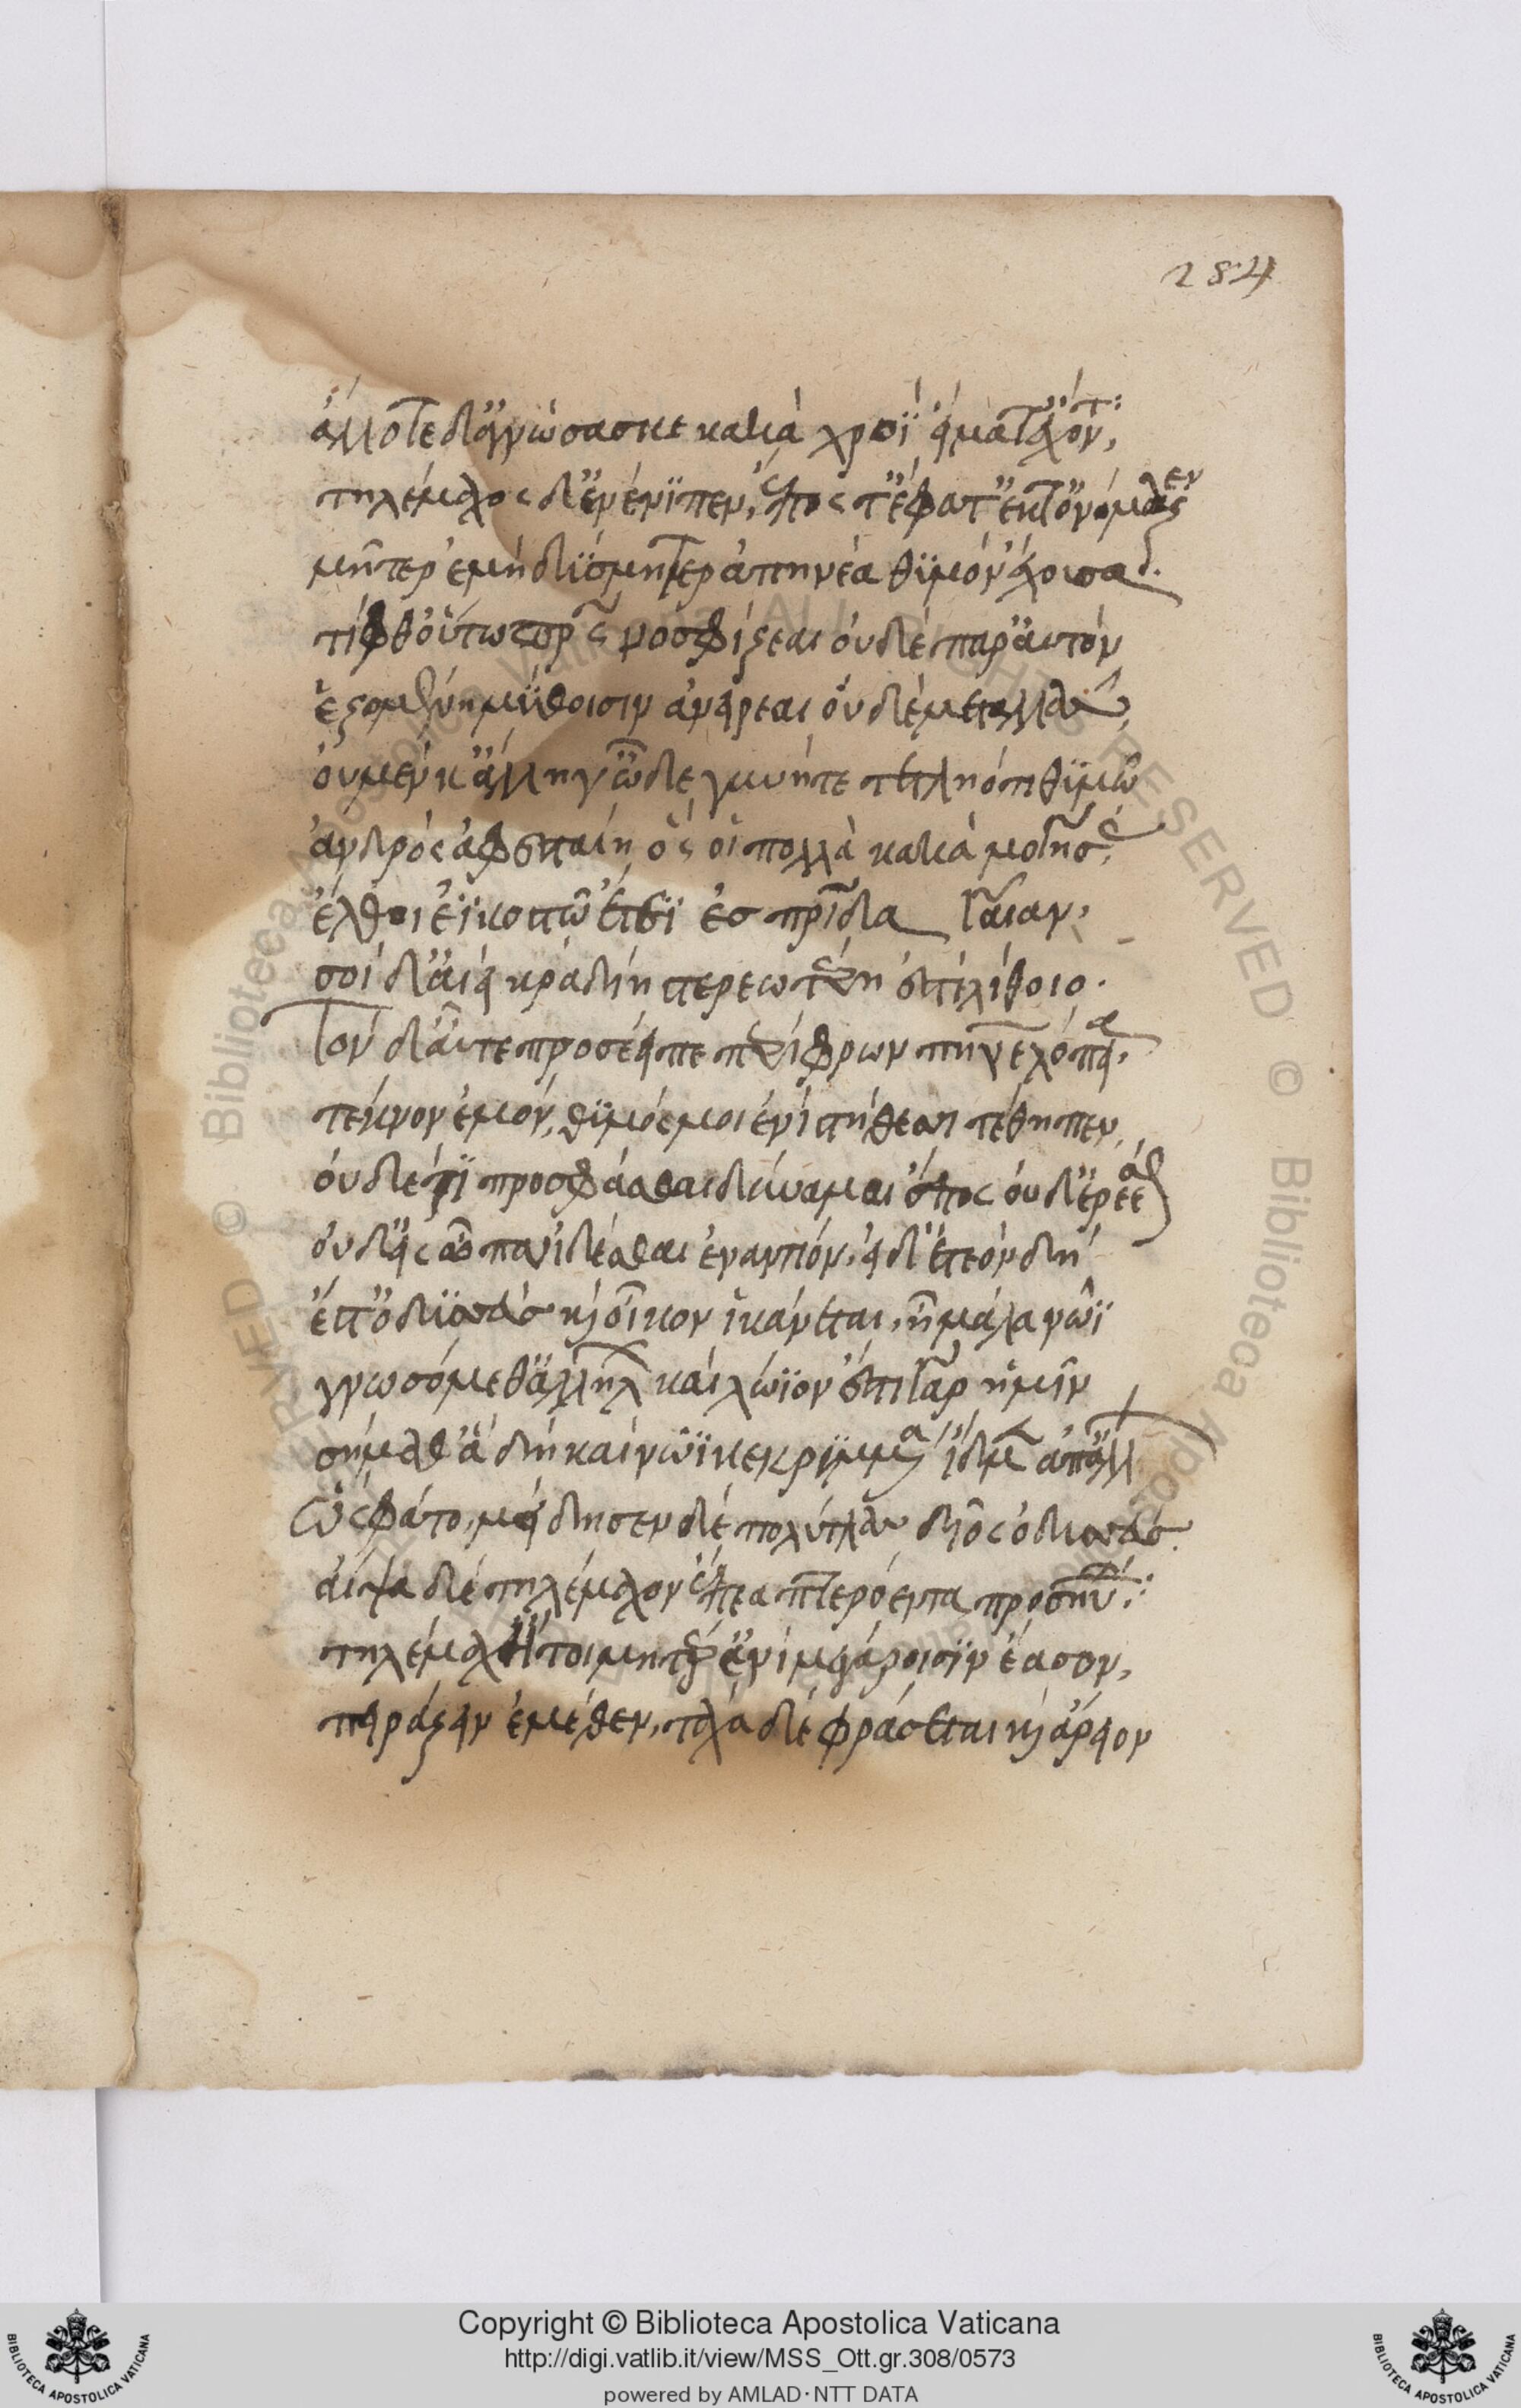 284
ἄλλοτε δ' ἀγνώσασκε κακὰ χροῒ εἵματ' ἔχοντ:
τηλέμαχος δ' ἐνένιπεν, ἔπος τ' ἔφατ' ἔκ τ' ὀνόμαζεν
μῆτερ ἐμὴ δύσμητερ ἀπηνέα θυμὸν ἔχουσα.
τίφθ' οὕτω πρς νοσφίζεαι οὐδὲ παρ' αὐτὸν
ἑζομένη μύθοισιν ἀνείρεαι οὐδὲ μεταλλᾶς,
οὐ μέν κ' ἄλλη γ' ὧδε γυνή τετληότι θυμῶ
ἀνδρὸς ἀφεσταίη ὅς οἱ πολλὰ κακὰ μογήσας
ἔλθοι ἐεικοστῶ ἔτεϊ ἐσ πρίδα γαῖαν,
σοὶ δ' αἰεὶ κραδίη στερεωτέρη ἐστὶ λίθοιο.
Τὸν δ' αὖτε προσέειπε περίφρων πηνελόπεια,
τέκνον ἐμόν, θυμός μοι ἐνὶ στήθεσι τέθηπεν,
οὐδέ τι προσφάσθαι δύναμαι ἔπος οὐδ' ἐρέεσθ
οὐδ' εἰς ὦπα ἰδέσθαι ἐναντίον, εἰ δ' ἐτεὸν δὴ
ἔστ' ὀδυσσεὺσ κὶ οἶκον ἱκάνεται, ἦ μάλα νῶϊ
γνωσόμεθ' ἀλλήλ καὶ λώϊον ἔστι γὰρ ἡμῖν
σήμαθ' ἃ δὴ καὶ νῶϊ κεκρυμμα ἴδμεν ἀπ' ἄλλ
Ὣς φάτο, μείδησεν δὲ πολύτλας δῖος ὀδυσσεύσ.
αἶψα δὲ τηλέμαχον ἔπεα πτερόεντα προσηύ:
τηλέμαχ' ἤτοι μητέρ' ἐνὶ μεγάροισιν ἔασον,
πειράζειν ἐμέθεν, τάχα δὲ φράσεται κὶ ἄρειον
Copyright © Biblioteca Apostolica Vaticana
http://digi.vatlib.it/view/MSS_Ott.gr.308/0573
powered by AMLAD·NTT DATA